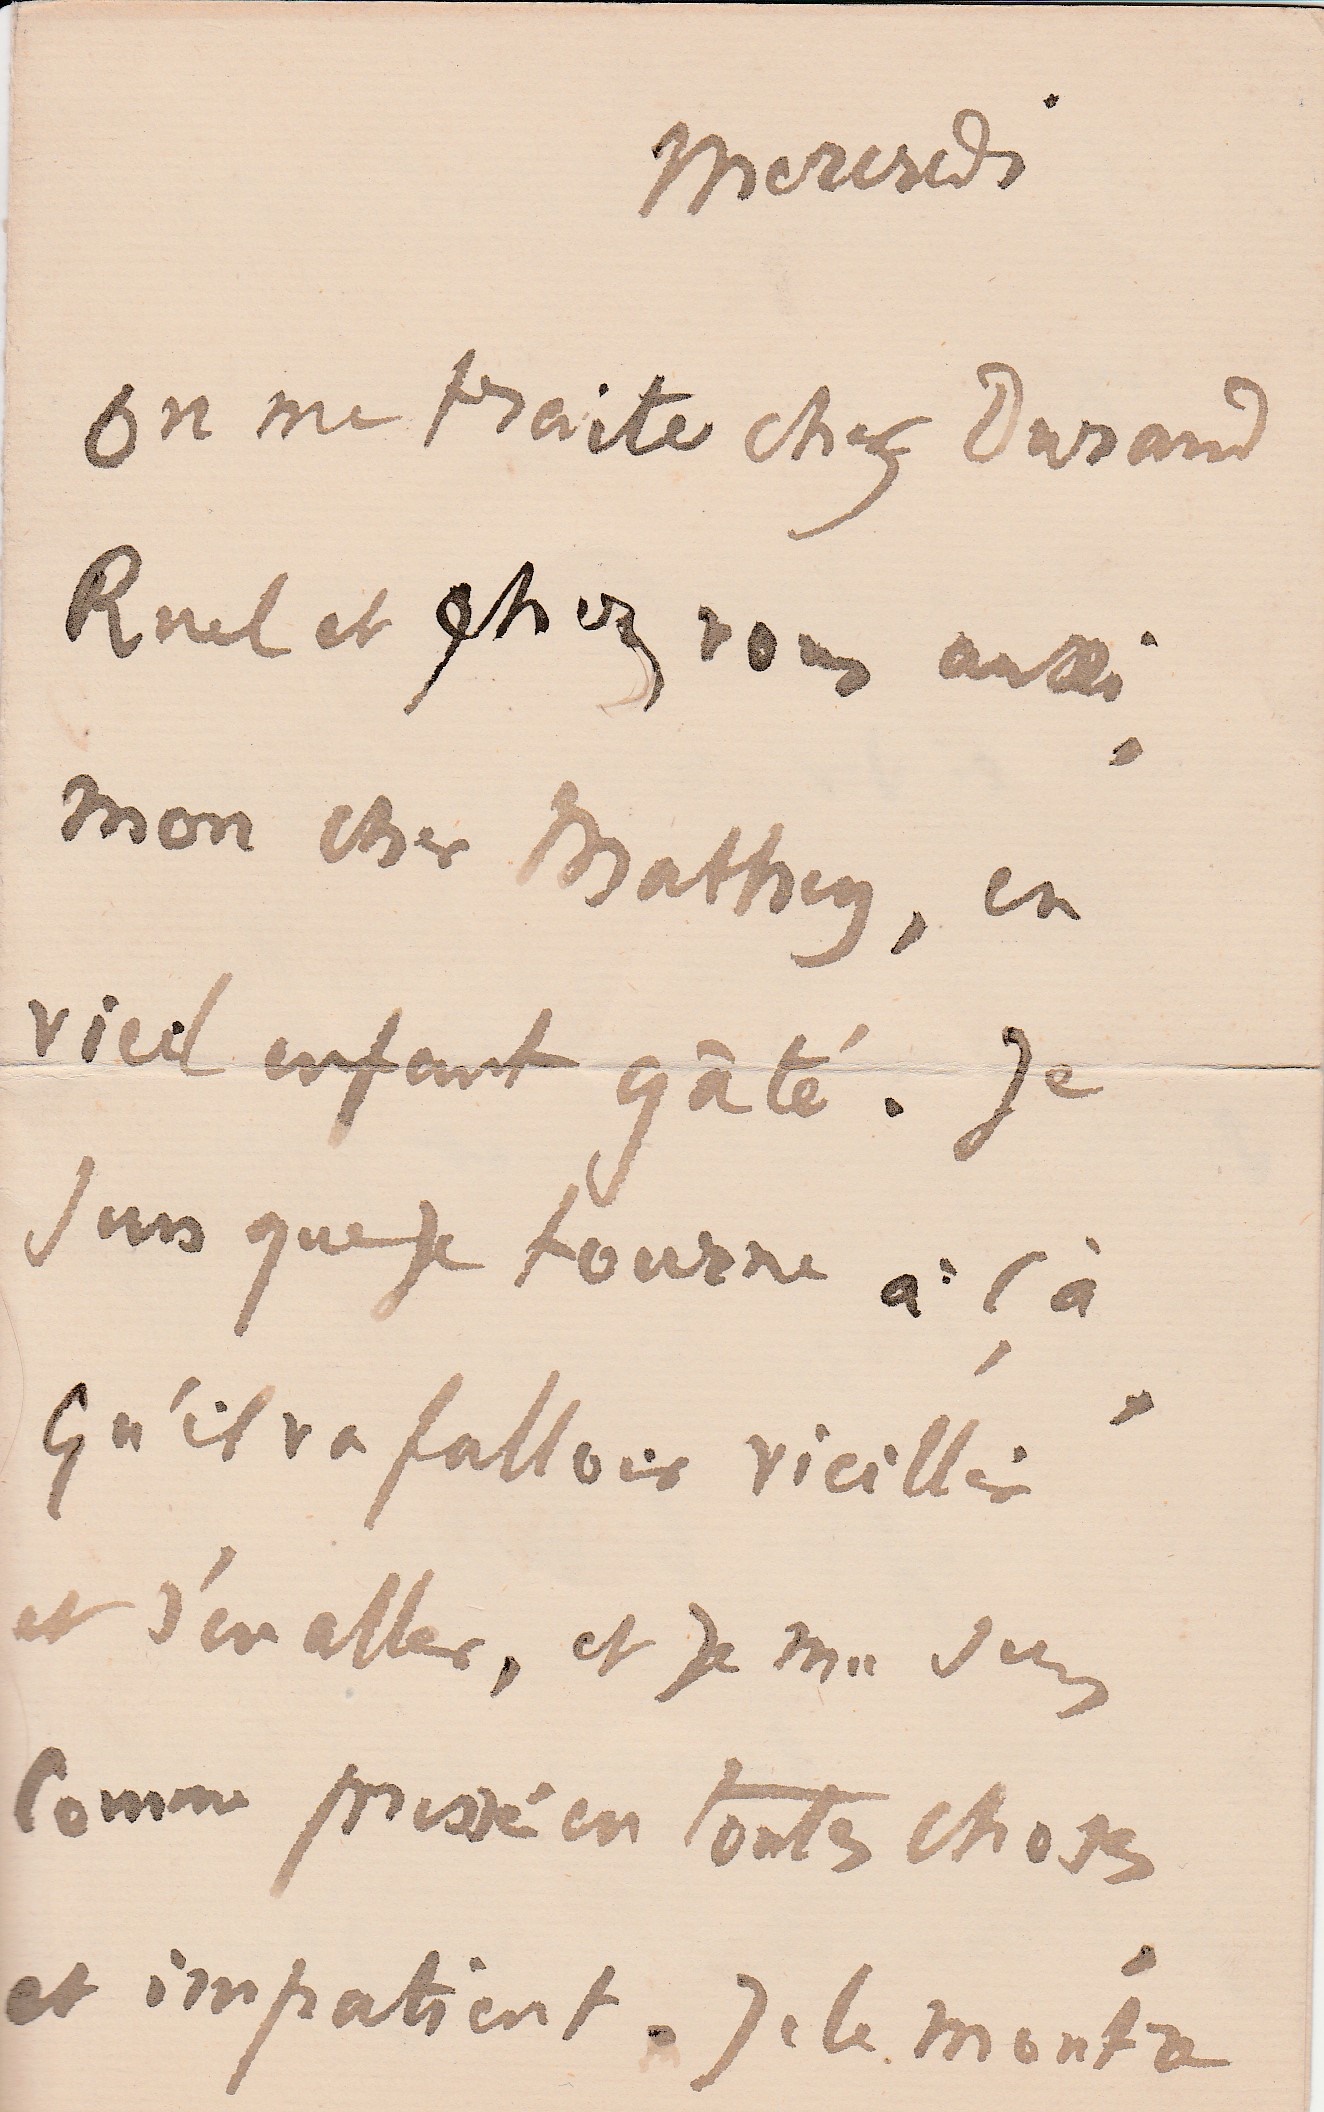 Mercredi
On me traite chez Durand
Ruel et chez vous aussi,
mon cher Mathey, en
vieil enfant gâté. Je
sens que je tourne à çà,
qu'il va falloir vieillir
et s'en aller, et je me sens
comme pressé en toutes choses
et impatient. Je le montre